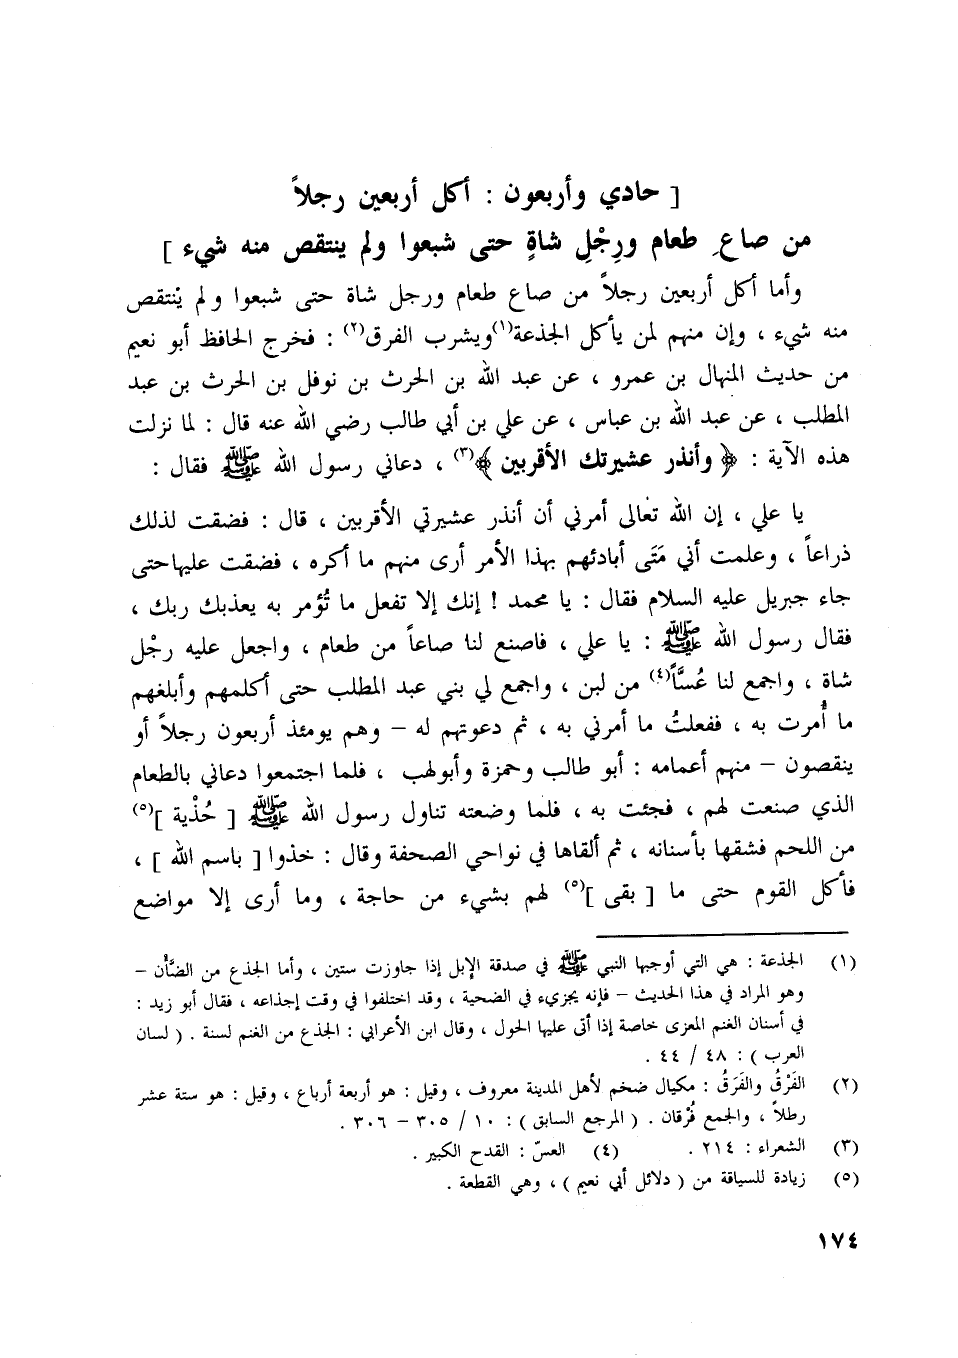 [ حادي وأربعون : أكل أربعين رجلاً
من صاع طعام ورِجْلِ شاةٍ حتى شبعوا ولم ينتقص منه شيء ]
وأما أكل أربعين رجلاً من صاع طعام ورجل شاة حتى شبعوا ولم ينْتقص
منه شيء ، وإن منهم لمن يأكل الجذعة(١)ويشرب الفرق(٢) : فخرج الحافظ أبو نعيم
من حديث المنهال بن عمرو ، عن عبد الله بن الحرث بن نوفل بن الحرث بن عبد
المطلب ، عن عبد الله بن عباس ، عن علي بن أبي طالب رضي الله عنه قال : لما نزلت
هذه الآية : ﴿ وأنذر عشيرتك الأقربين ﴾(٣) ، دعاني رسول الله ﷺ فقال :
يا علي ، إن الله تعالى أمرني أن أنذر عشيرتي الأقربين ، قال : فضقت لذلك
ذراعاً ، وعلمت أني مَتَى أبادئهم بهذا الأمر أرى منهم ما أكره ، فضقت عليهاحتى
جاء جبريل عليه السلام فقال : يا محمد ! إنك إلا تفعل ما تُؤمر به يعذبك ربك ،
فقال رسول الله ﷺ : يا علي ، فاصنع لنا صاعاً من طعام ، واجعل عليه رجْل
شاة ، واجمع لنا عُسًّا(٤) من لبن ، واجمع لي بني عبد المطلب حتى أكلمهم وأبلغهم
ما أُمرت به ، ففعلتُ ما أمرني به ، ثم دعوتهم له – وهم يومئذ أربعون رجلاً أو
ينقصون – منهم أعمامه : أبو طالب وحمزة وأبولهب ، فلما اجتمعوا دعاني بالطعام
الذي صنعت لهم ، فجئت به ، فلما وضعته تناول رسول الله ﷺ [ حُذْية ](٥)
من اللحم فشقها بأسنانه ، ثم ألقاها في نواحي الصحفة وقال : خذوا [ باسم الله ] ،
فأكل القوم حتى ما [ بقى ](٥) لهم بشيء من حاجة ، وما أرى إلا مواضع
(١) الجذعة : هي التي أوجبها النبي ﷺ في صدقة الإبل إذا جاوزت ستين ، وأما الجذع من الضَّأْن –
وهو المراد في هذا الحديث – فإنه يجزيء في الضحية ، وقد اختلفوا في وقت إجذاعه ، فقال أبو زيد :
في أسنان الغنم المعزى خاصة إذا أتى عليها الحول ، وقال ابن الأعرابي : الجذع من الغنم لسنة . ( لسان
العرب ) : ٤٨ / ٤٤ .
(٢) الفَرْقُ والفَرَقُ : مكيال ضخم لأهل المدينة معروف ، وقيل : هو أربعة أرباع ، وقيل : هو ستة عشر
رطلاً ، والجمع فُرْقان . ( المرجع السابق ) : ١٠ / ٣٠٥ – ٣٠٦ .
(٣) الشعراء : ٢١٤ . (٤) العسّ : القدح الكبير .
(٥) زيادة للسياقة من ( دلائل أبي نعيم ) ، وهي القطعة .
١٧٤